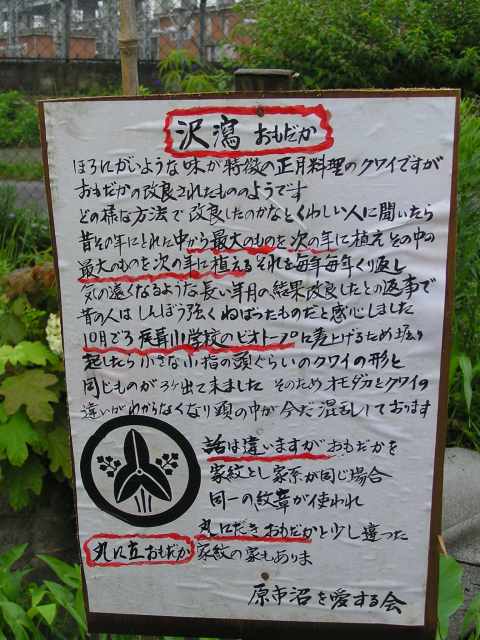 沢瀉 おもだか
ほろにがいような味が特徴の正月料理のクワイですが
おもだかの改良されたもののようです
どの様な方法で改良したのかなとくわしい人に聞いたら
昔その年にとれた中から最大のものを次の年に植え その中の
最大のものを次の年に植える それを毎年毎年くり返し
気の遠くなるような長い年月の結果改良したとの返事で
昔の人はしんぼう強くねばったものだと感心しました
10月ごろ 尾山小学校のビオトープに差上げるため堀り
起したら小さな小指の頭ぐらいのクワイの形と
同じものが3ヶ出て来ました そのためオモダカとクワイの
違いがわからなくなり頭の中が今だ混乱しております
話は違いますがおもだかを
家紋とし家系が同じ場合
同一の紋章が使われ
丸にだきおもだかと少し違った
丸に立おもだか 家紋の家もありま
原市沼を愛する会